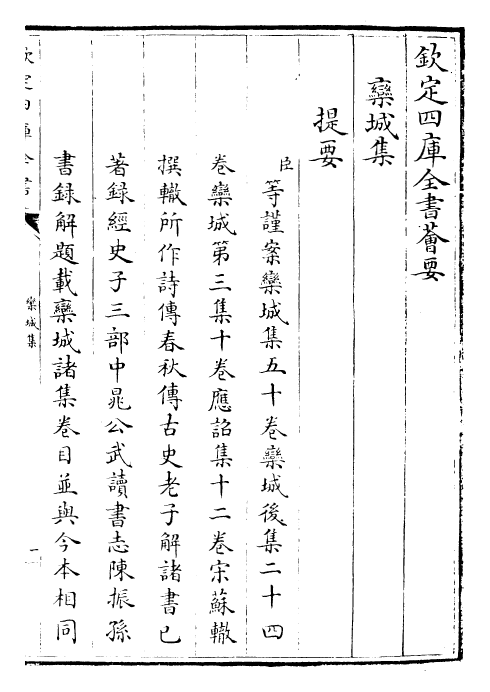 欽定四庫全書薈要
欒城集
提要
臣等謹案欒城集五十卷欒城後集二十四
卷欒城第三集十卷應詔集十二卷宋蘇轍
撰轍所作詩傳春秋傳古史老子解諸書已
著録經史子三部中晁公武讀書志陳振孫
書録解題載欒城諸集卷目並與今本相同
欽定四庫全書
欒城集
一